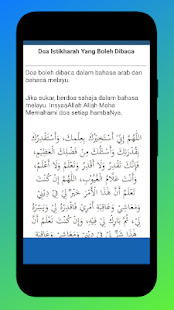 Doa Istikharah Yang Boleh Dibaca
Doa boleh dibaca dalam bahasa arab dan
bahasa melayu.
Jika sukar, berdoa sahaja dalam bahasa
melayu. InsyaaAllah Allah Maha
Memahami doa setiap hambaNya.
اللَّهُمَّ إِنِّيْ أَسْتَخِيْرُكَ بِعِلْمِكَ، وَأَسْتَقْدِرُكَ
بِقُدْرَتِكَ وَأَسْئَلُكَ مِنْ فَضْلِكَ الْعَظِيْمِ،
فَإِنَّكَ تَقْدِرُ وَلَا أَقْدِرُ وَتَعْلَمُ وَلَا أَعْلَمُ
وَأَنْتَ عَلَّامُ الْغُيُوْبِ، اللَّهُمَّ إِنْ كُنْتَ
تَعْلَمُ أَنَّ هَذَا الْأَمْرَ خَيْرٌ لِيْ فِيْ دِيْنِيْ
وَمَعَاشِيْ وَعَاقِبَةِ أَمْرِيْ فَاقْدِرْهُ لِيْ وَيَسِّرْهُ
لِيْ، ثُمَّ بَارِكْ لِيْ فِيْهِ، وَإِنْ كُنْتَ تَعْلَمُ أَنَّ